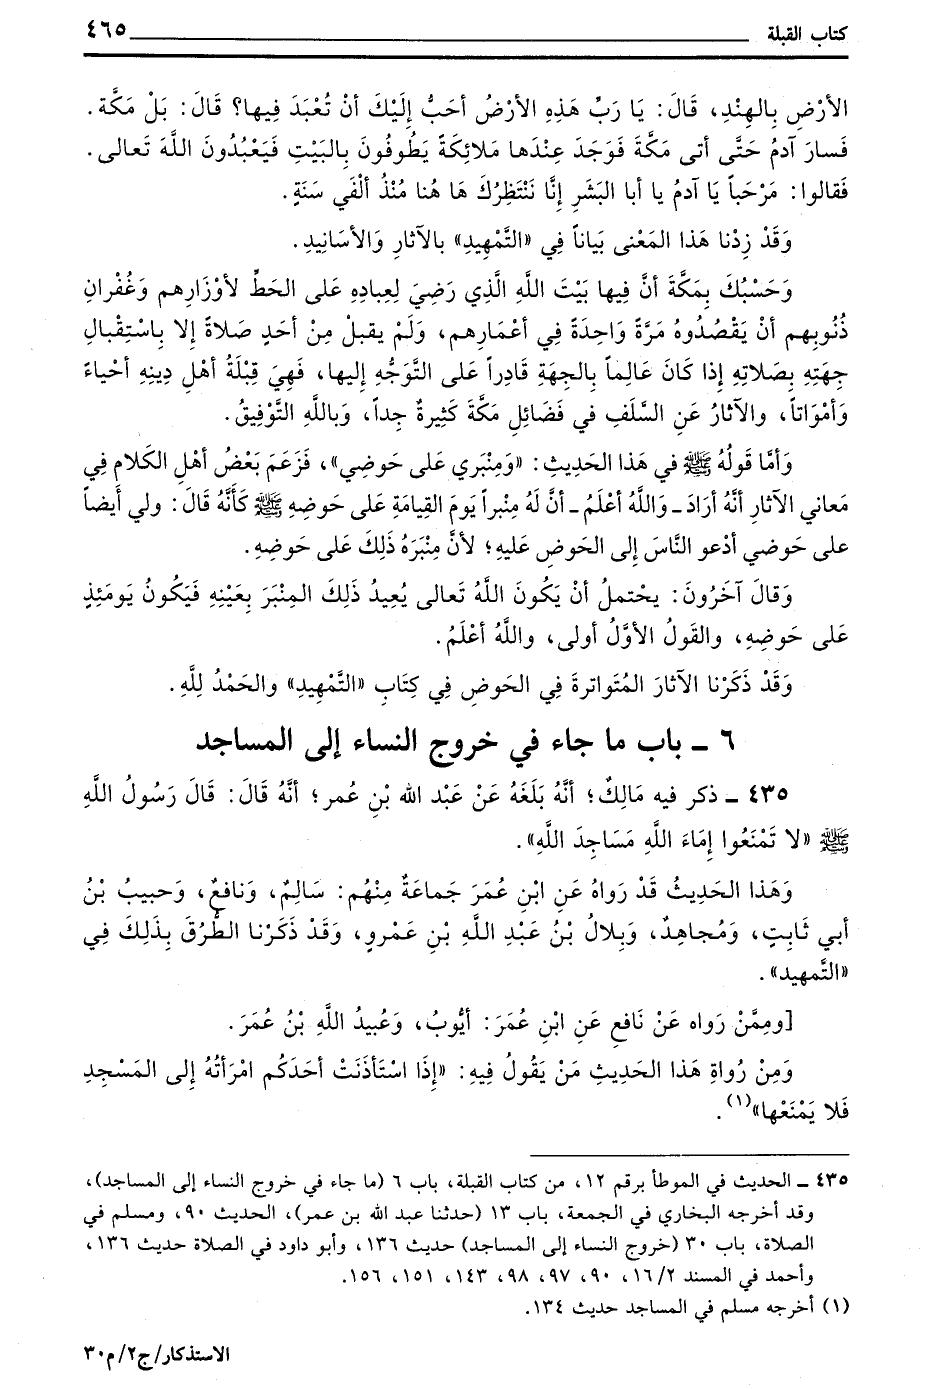 كتاب القبلة ٤٦٥
الأرْضِ بِالهِنْدِ، قَالَ: يَا رَبِّ هَذِهِ الأرْضُ أحَبُّ إِلَيْكَ أنْ تُعْبَدَ فِيها؟ قَالَ: بَلْ مَكَّة.
فَسارَ آدمُ حَتَّى أتى مَكَّةَ فَوَجَدَ عِنْدَها مَلائِكَةً يَطُوفُونَ بِالبَيْتِ فَيَعْبُدُونَ اللَّهَ تَعالى.
فَقالوا: مَرْحَباً يَا آدمُ يا أبا البَشَرِ إِنَّا نَنْتَظِرُكَ هَا هُنا مُنْذُ ألْفَي سَنَةٍ.
وَقَدْ زِدْنا هَذا المَعْنى بَيَاناً فِي «التَّمْهِيدِ» بالآثارِ وَالأسَانِيدِ.
وَحَسْبُكَ بِمَكَّةَ أنَّ فِيها بَيْتَ اللَّهِ الَّذِي رَضِيَ لِعِبادِهِ عَلى الحَطِّ لأوْزَارِهِم وَغُفْرانِ
ذُنُوبِهِم أنْ يَقْصُدُوهُ مَرَّةً وَاحِدَةً فِي أعْمَارِهِم، وَلَمْ يقبلْ مِنْ أحَدٍ صَلاةً إلا بِاسْتِقْبالِ
جِهَتِهِ بِصَلاتِهِ إذا كَانَ عَالِماً بالجِهَةِ قَادِراً عَلى التَّوَجُّهِ إليها، فَهِيَ قِبْلَةُ أهْلِ دِينِهِ أحْياءً
وَأمْوَاتاً، والآثارُ عَنِ السَّلَفِ في فَضَائِلِ مَكَّةَ كَثِيرةٌ جِداً، وَباللَّهِ التَّوْفِيقُ.
وَأمَّا قَولُهُ ﷺ في هَذا الحَدِيثِ: «وَمِنْبَرِي عَلى حَوضِي»، فَزَعَمَ بَعْضُ أهْلِ الكَلامِ فِي
مَعاني الآثارِ أنَّهُ أرَادَ ـ وَاللَّهُ أعْلَمُ ـ أنَّ لَهُ مِنْبراً يَومَ القِيامَةِ عَلى حَوضِهِ ﷺ كَأنَّهُ قَالَ: ولي أيضاً
على حَوضي أدْعو النَّاسَ إلى الحَوضِ عَلَيهِ؛ لأنَّ مِنْبَرَهُ ذَلِكَ عَلى حَوضِهِ.
وَقالَ آخَرُونَ: يحْتملُ أنْ يَكُونَ اللَّهُ تَعالى يُعِيدُ ذَلِكَ المِنْبَرَ بِعَيْنِهِ فَيَكُونُ يَومَئِذٍ
عَلى حَوضِهِ، والقَولُ الأوَّلُ أولى، واللَّهُ أعْلَمُ.
وَقَدْ ذَكَرْنا الآثارَ المُتَواتِرةَ فِي الحَوضِ فِي كِتَابِ «التَّمْهِيدِ» والحَمْدُ لِلَّهِ.
٦ ـ باب ما جاء في خروج النساء إلى المساجد
٤٣٥ ـ ذكر فيه مَالِكٌ؛ أنَّهُ بَلَغَهُ عَنْ عَبْد الله بْنِ عُمر؛ أنَّهُ قَالَ: قَالَ رَسُولُ اللَّهِ
ﷺ «لا تَمْنَعُوا إِمَاءَ اللَّهِ مَسَاجِدَ اللَّهِ».
وَهَذا الحَدِيثُ قَدْ رَواهُ عَنِ ابْنِ عُمَرَ جَماعَةٌ مِنْهُم: سَالِمٌ، وَنافعٌ، وَحبيبُ بْنُ
أبي ثَابِتٍ، وَمُجاهِدٌ، وَبِلالُ بْنُ عَبْدِ اللَّهِ بْنِ عَمْروٍ، وَقَدْ ذَكَرْنا الطُّرُقَ بِذَلِكَ فِي
«التَّمهيد».
[ومِمَّنْ رَواه عَنْ نَافعٍ عَنِ ابْنِ عُمَرَ: أيُّوبُ، وَعُبيدُ اللَّهِ بْنُ عُمَرَ.
وَمِنْ رُواةِ هَذا الحَدِيثِ مَنْ يَقُولُ فِيهِ: «إِذَا اسْتَأذَنَتْ أحَدَكُم امْرَأتُهُ إلى المَسْجِدِ
فَلا يَمْنَعْها»(١).
٤٣٥ ـ الحديث في الموطأ برقم ١٢، من كتاب القبلة، باب ٦ (ما جاء في خروج النساء إلى المساجد)،
وقد أخرجه البخاري في الجمعة، باب ١٣ (حدثنا عبد الله بن عمر)، الحديث ٩٠، ومسلم في
الصلاة، باب ٣٠ (خروج النساء إلى المساجد) حديث ١٣٦، وأبو داود في الصلاة حديث ١٣٦،
وأحمد في المسند ١٦/٢، ٩٠، ٩٧، ٩٨، ١٤٣، ١٥١، ١٥٦.
(١) أخرجه مسلم في المساجد حديث ١٣٤.
الاستذكار/ج٢/م٣٠